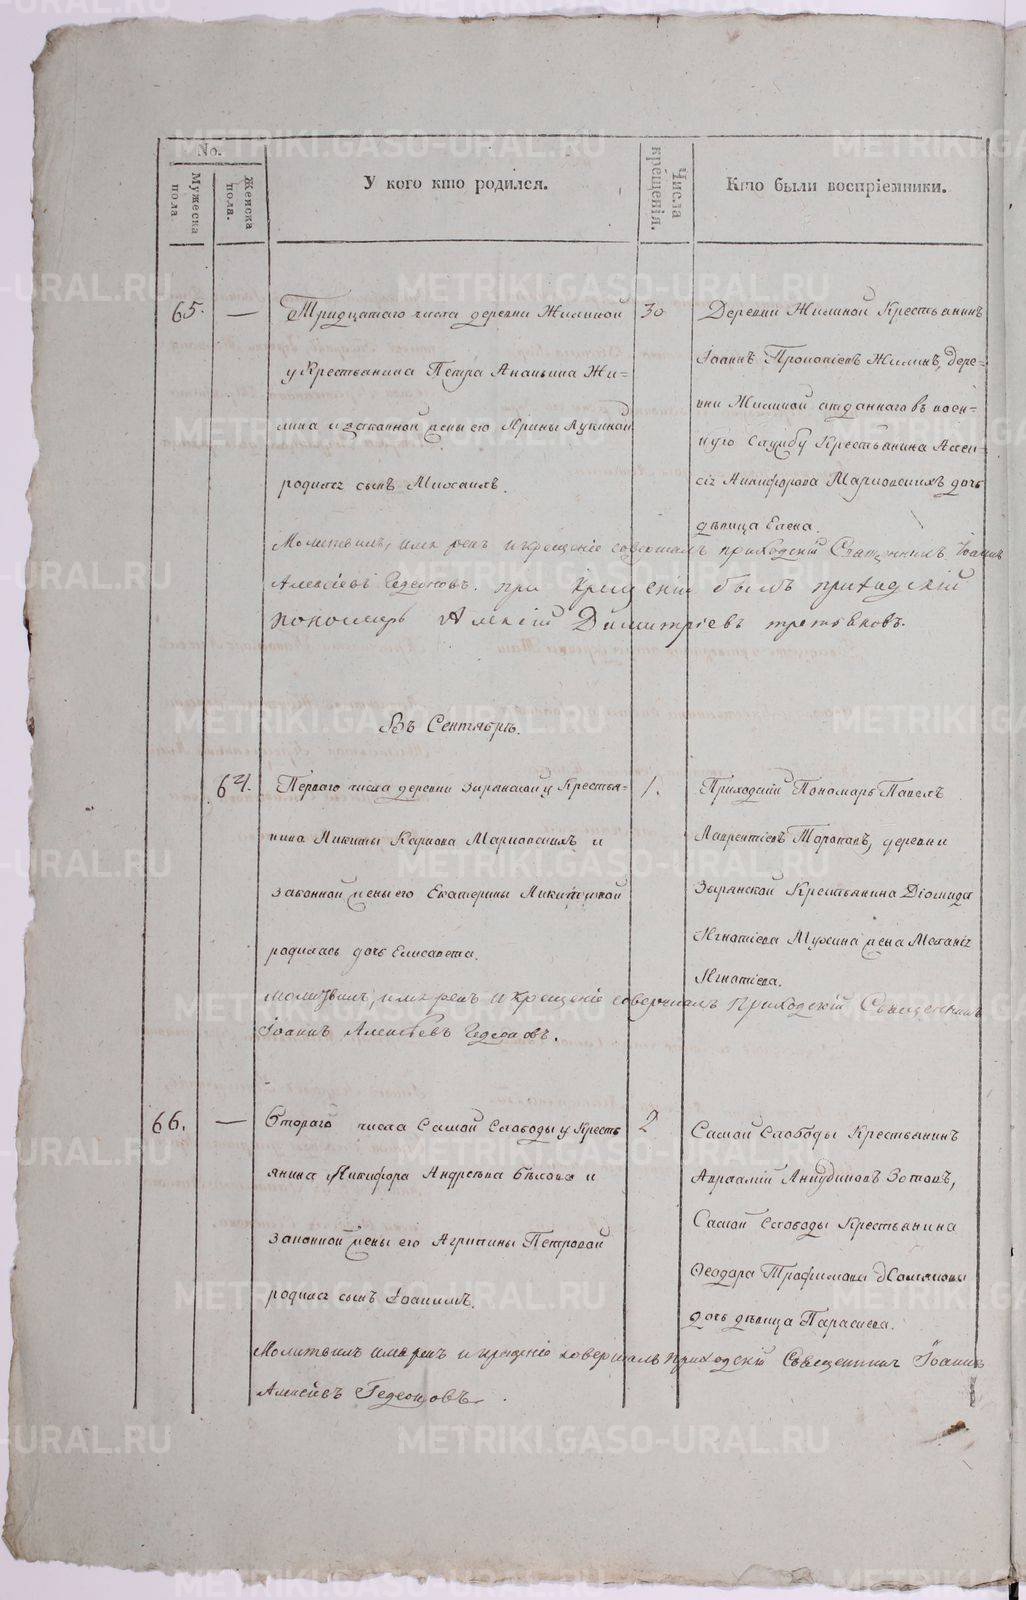 No.
Мужеска пола.
Женска пола.
У кого кто родился.
Числа крещенія.
Кто были воспріемники.
65. — Тридцатаго числа деревни Жилиной
у Крестьянина Петра Ананьина Жи-
лина и законной жены его Ирины Лукиной
родился сынъ Михаилъ.
30
Деревни Жилиной Крестьянинъ
Іоаннъ Прокопіевъ Жилинъ, дере-
вни Жилиной отданнаго въ воен-
ную службу Крестьянина Алек-
сія Никифорова дочь
дѣвица Елена.
Молитвилъ, имя рекъ и крещеніе совершалъ приходскій Священникъ Іоаннъ
Алексіевъ Гедеоновъ. при Крещеніи былъ приходскій
пономарь Алексій Димитріевъ третьяковъ.
Въ Сентябрѣ.
64. Перваго числа деревни Зырянской у Крестья-
нина Никиты Карпова и
законной жены его Екатерины Никитиной
родилась дочь Елисавета.
1.
Приходскій Пономарь Павелъ
Лаврентіевъ Топорковъ, деревни
Зырянской Крестьянина Діомида
Игнатіева Мухина жена Меланія
Игнатіева.
молитвилъ, имя рекъ и крещеніе совершалъ Приходскій Священникъ
Іоаннъ Алексѣевъ Гедеоновъ.
66. — Втораго числа Самой Слободы у Кресть
янина Никифора Андреева Бѣлова и
законной жены его Агрипины Петровой
родился сынъ Іоакимъ.
2
Самой Слободы Крестьянинъ
Авраамій Анкудиновъ Зотовъ,
Самой Слободы Крестьянина
Ѳеодора Трафимова
дочь дѣвица Параскева.
Молитвилъ имя рекъ и крещеніе совершалъ приходскій Священникъ Іоаннъ
Алексіевъ Гедеоновъ.
METRIKI.GASO-URAL.RU